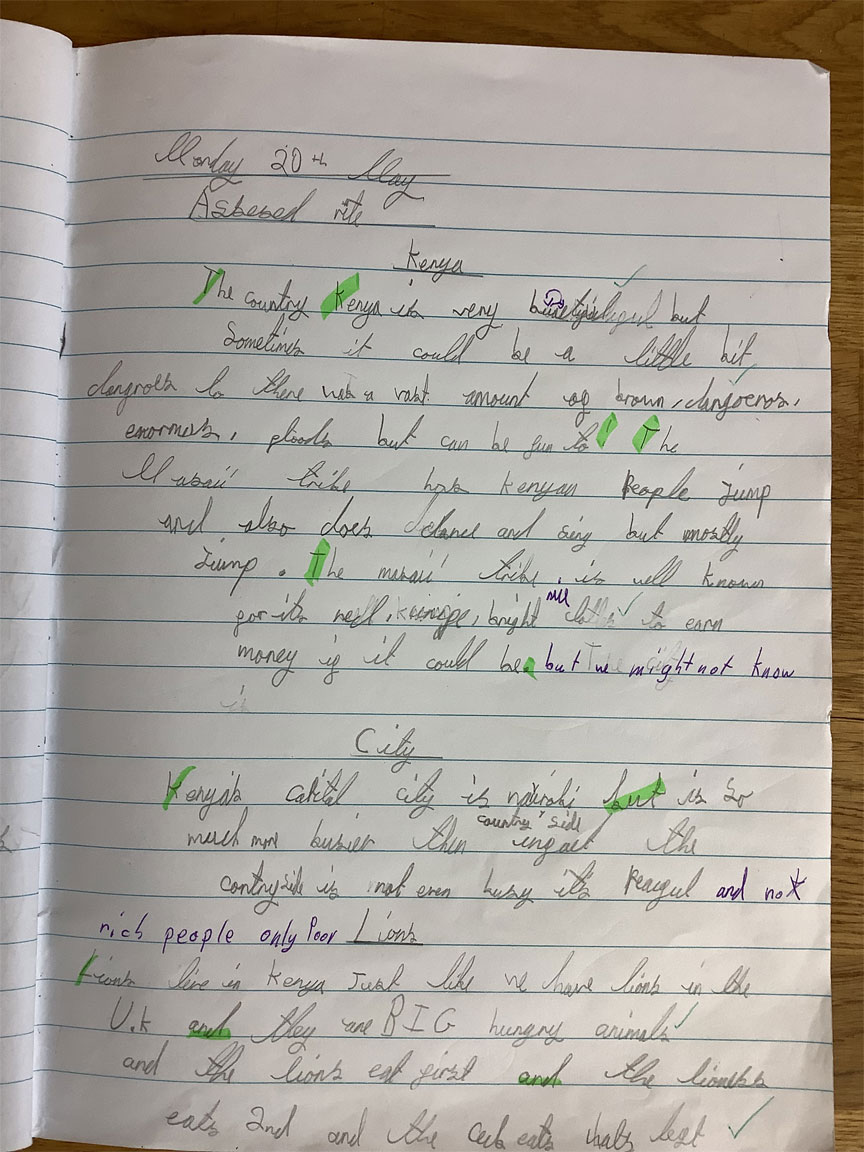 Monday 20th May
Assesed rite
Kenya
The country Kenya is very but
Sometimes it could be a little bit
dangroes So there was a vast amount of brown, dangoeros,
enormous, floods but can be fun to! The
Masaii tribe has Kenyan People Jump
and also does dance and sing but mostly
Jump. The masaii tribe, is well known
for its red, bright to earn
money if it could be. but we might not know
City
Kenya's capital city is nairobi but is So
much more busier then country side infact the
contryside is not even busy it's Peacful and not
rich people only Poor Lions
Lions live in Kenya Just like we have lions in the
U.K and they are BIG hungry animals
and the lions eat first and the lioness
eats 2nd and the cub eats whats left